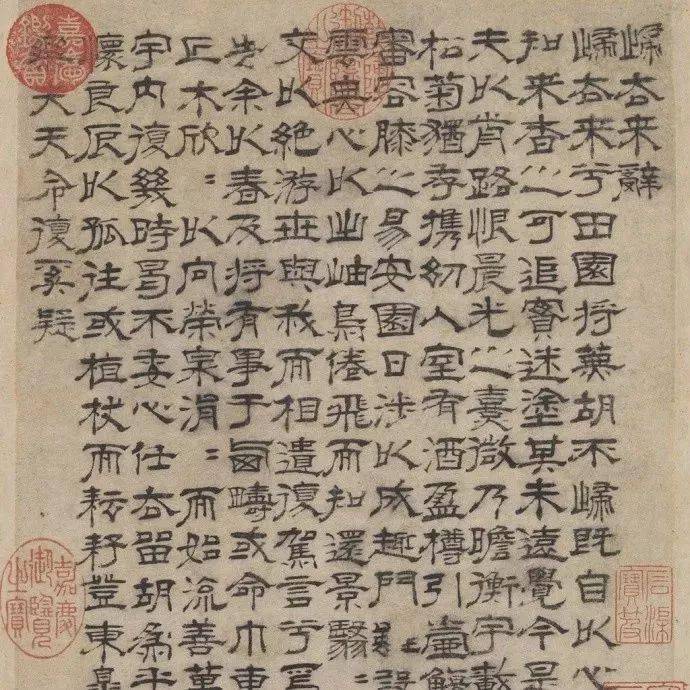 歸去来辭
歸去来兮田園將蕪胡不歸既自以心
知来者之可追實迷塗其未遠覺今是
夫以前路恨晨光之熹微乃瞻衡宇載
松菊猶存攜幼入室有酒盈樽引壺觴
審容膝之易安園日涉以成趣門雖設
雲無心以出岫鳥倦飛而知還景翳〻
交以絕游世與我而相遺復駕言兮焉
告余以春及將有事于西疇或命巾車
丘木欣〻以向榮泉涓〻而始流善萬
宇内復幾時曷不委心任去留胡為乎
懷良辰以孤往或植杖而耘耔登東皋
樂夫天命復奚疑
石渠寶笈
嘉慶御覽之寶